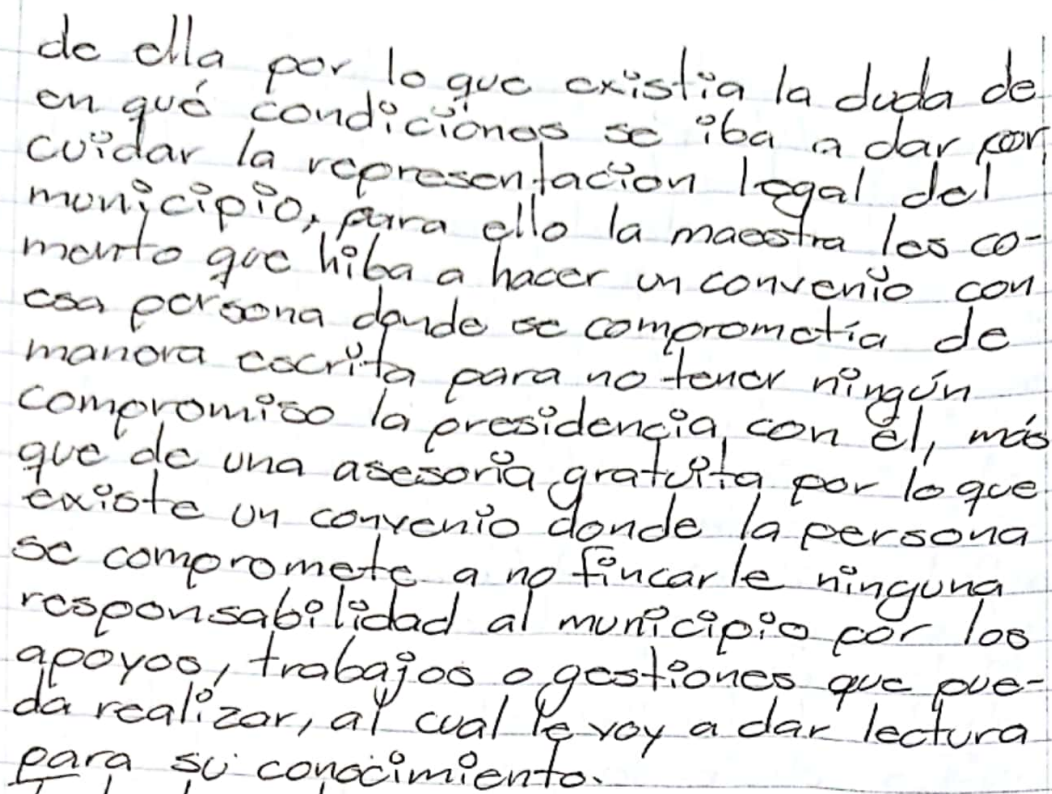 de ella por lo que existia la duda de
en qué condiciones se iba a dar por
cuidar la representacion legal del
municipio, para ello la maestra les co-
mento que hiba a hacer un convenio con
esa persona donde se comprometía de
manera escrita para no tener ningún
compromiso la presidencia con él, más
que de una asesoria gratuita por lo que
existe un convenio donde la persona
se compromete a no fincarle ninguna
responsabilidad al municipio por los
apoyos, trabajos o gestiones que pue-
da realizar, al cual le voy a dar lectura
para su conocimiento.